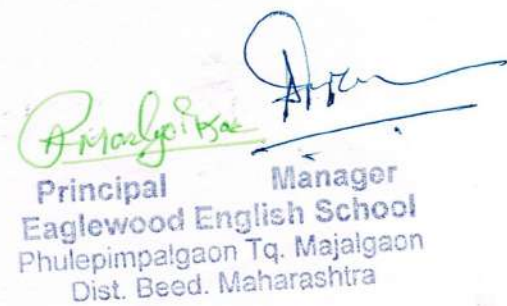 Principal Manager
Eaglewood English School
Phulepimpalgaon Tq. Majalgaon
Dist. Beed. Maharashtra